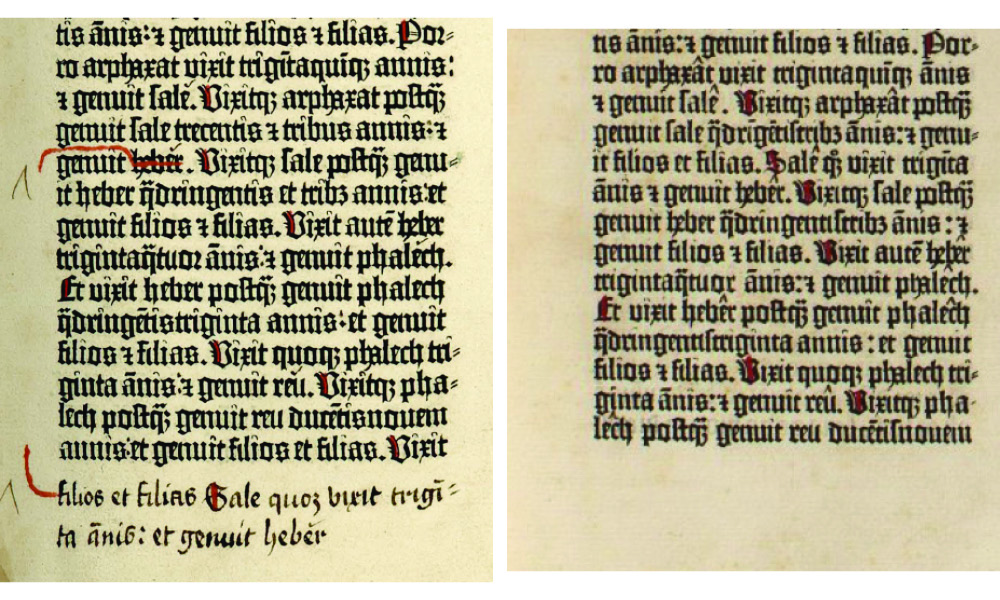 tis ānis: ⁊ genuit filios ⁊ filias. Por⸗
ro arphaxat vixit trigītaquīq; annis:
⁊ genuit salē. Vixitq; arphaxat postq̄̄
genuit sale trecentis ⁊ tribus annis: ⁊
genuit heber. Vixitq; sale postq̄̄ genu⸗
it heber q̄dringentis et tribꝫ annis: et
genuit filios ⁊ filias. Vixit autē heber
trigintaq̄tuor ānis: ⁊ genuit phalech.
Et vixit heber postq̄̄ genuit phalech
q̄dringētistriginta annis: et genuit
filios ⁊ filias. Vixit quoq; phalech tri⸗
ginta ānis: ⁊ genuit reu. Vixitq; pha⸗
lech postq̄̄ genuit reu ducētisnouem
annis: et genuit filios et filias. Vixit
filios et filias Sale quoꝫ vixit trigī⸗
ta ānis: et genuit heber
tis ānis: ⁊ genuit filios ⁊ filias. Por⸗
ro arphaxât vixit trigintaquīq; ānis
⁊ genuit salê. Vixitq; arphaxât postq̄̄
genuit sale q̄drigētistribꝫ ānis: ⁊ genu⸗
it filios et filias. Salê q; vixit trigīta
ānis ⁊ genuit heber. Vixitq; sale postq̄̄
genuit heber q̄dringentistribꝫ ānis: ⁊
genuit filios ⁊ filias. Vixit autē hebêr
trigintaq̄tuor ānis: ⁊ genuit phalech.
Et vixit hebêr postq̄̄ genuit phalêch
q̄dringentistriginta annis: et genuit
filios ⁊ filias. Vixit quoq; phalech tri⸗
ginta ānis: ⁊ genuit reû. Vixitq; pha⸗
lêch postq̄̄ genuit reu ducētisnouem